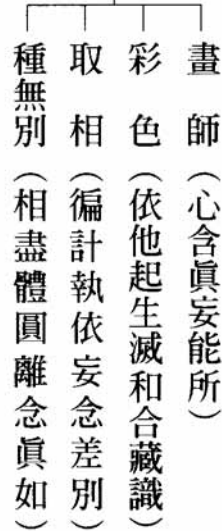 畫師(心含眞妄能所)
彩色(依他起生滅和合藏識)
取相(徧計執依妄念差別)
種無別(相盡體圓離念眞如)